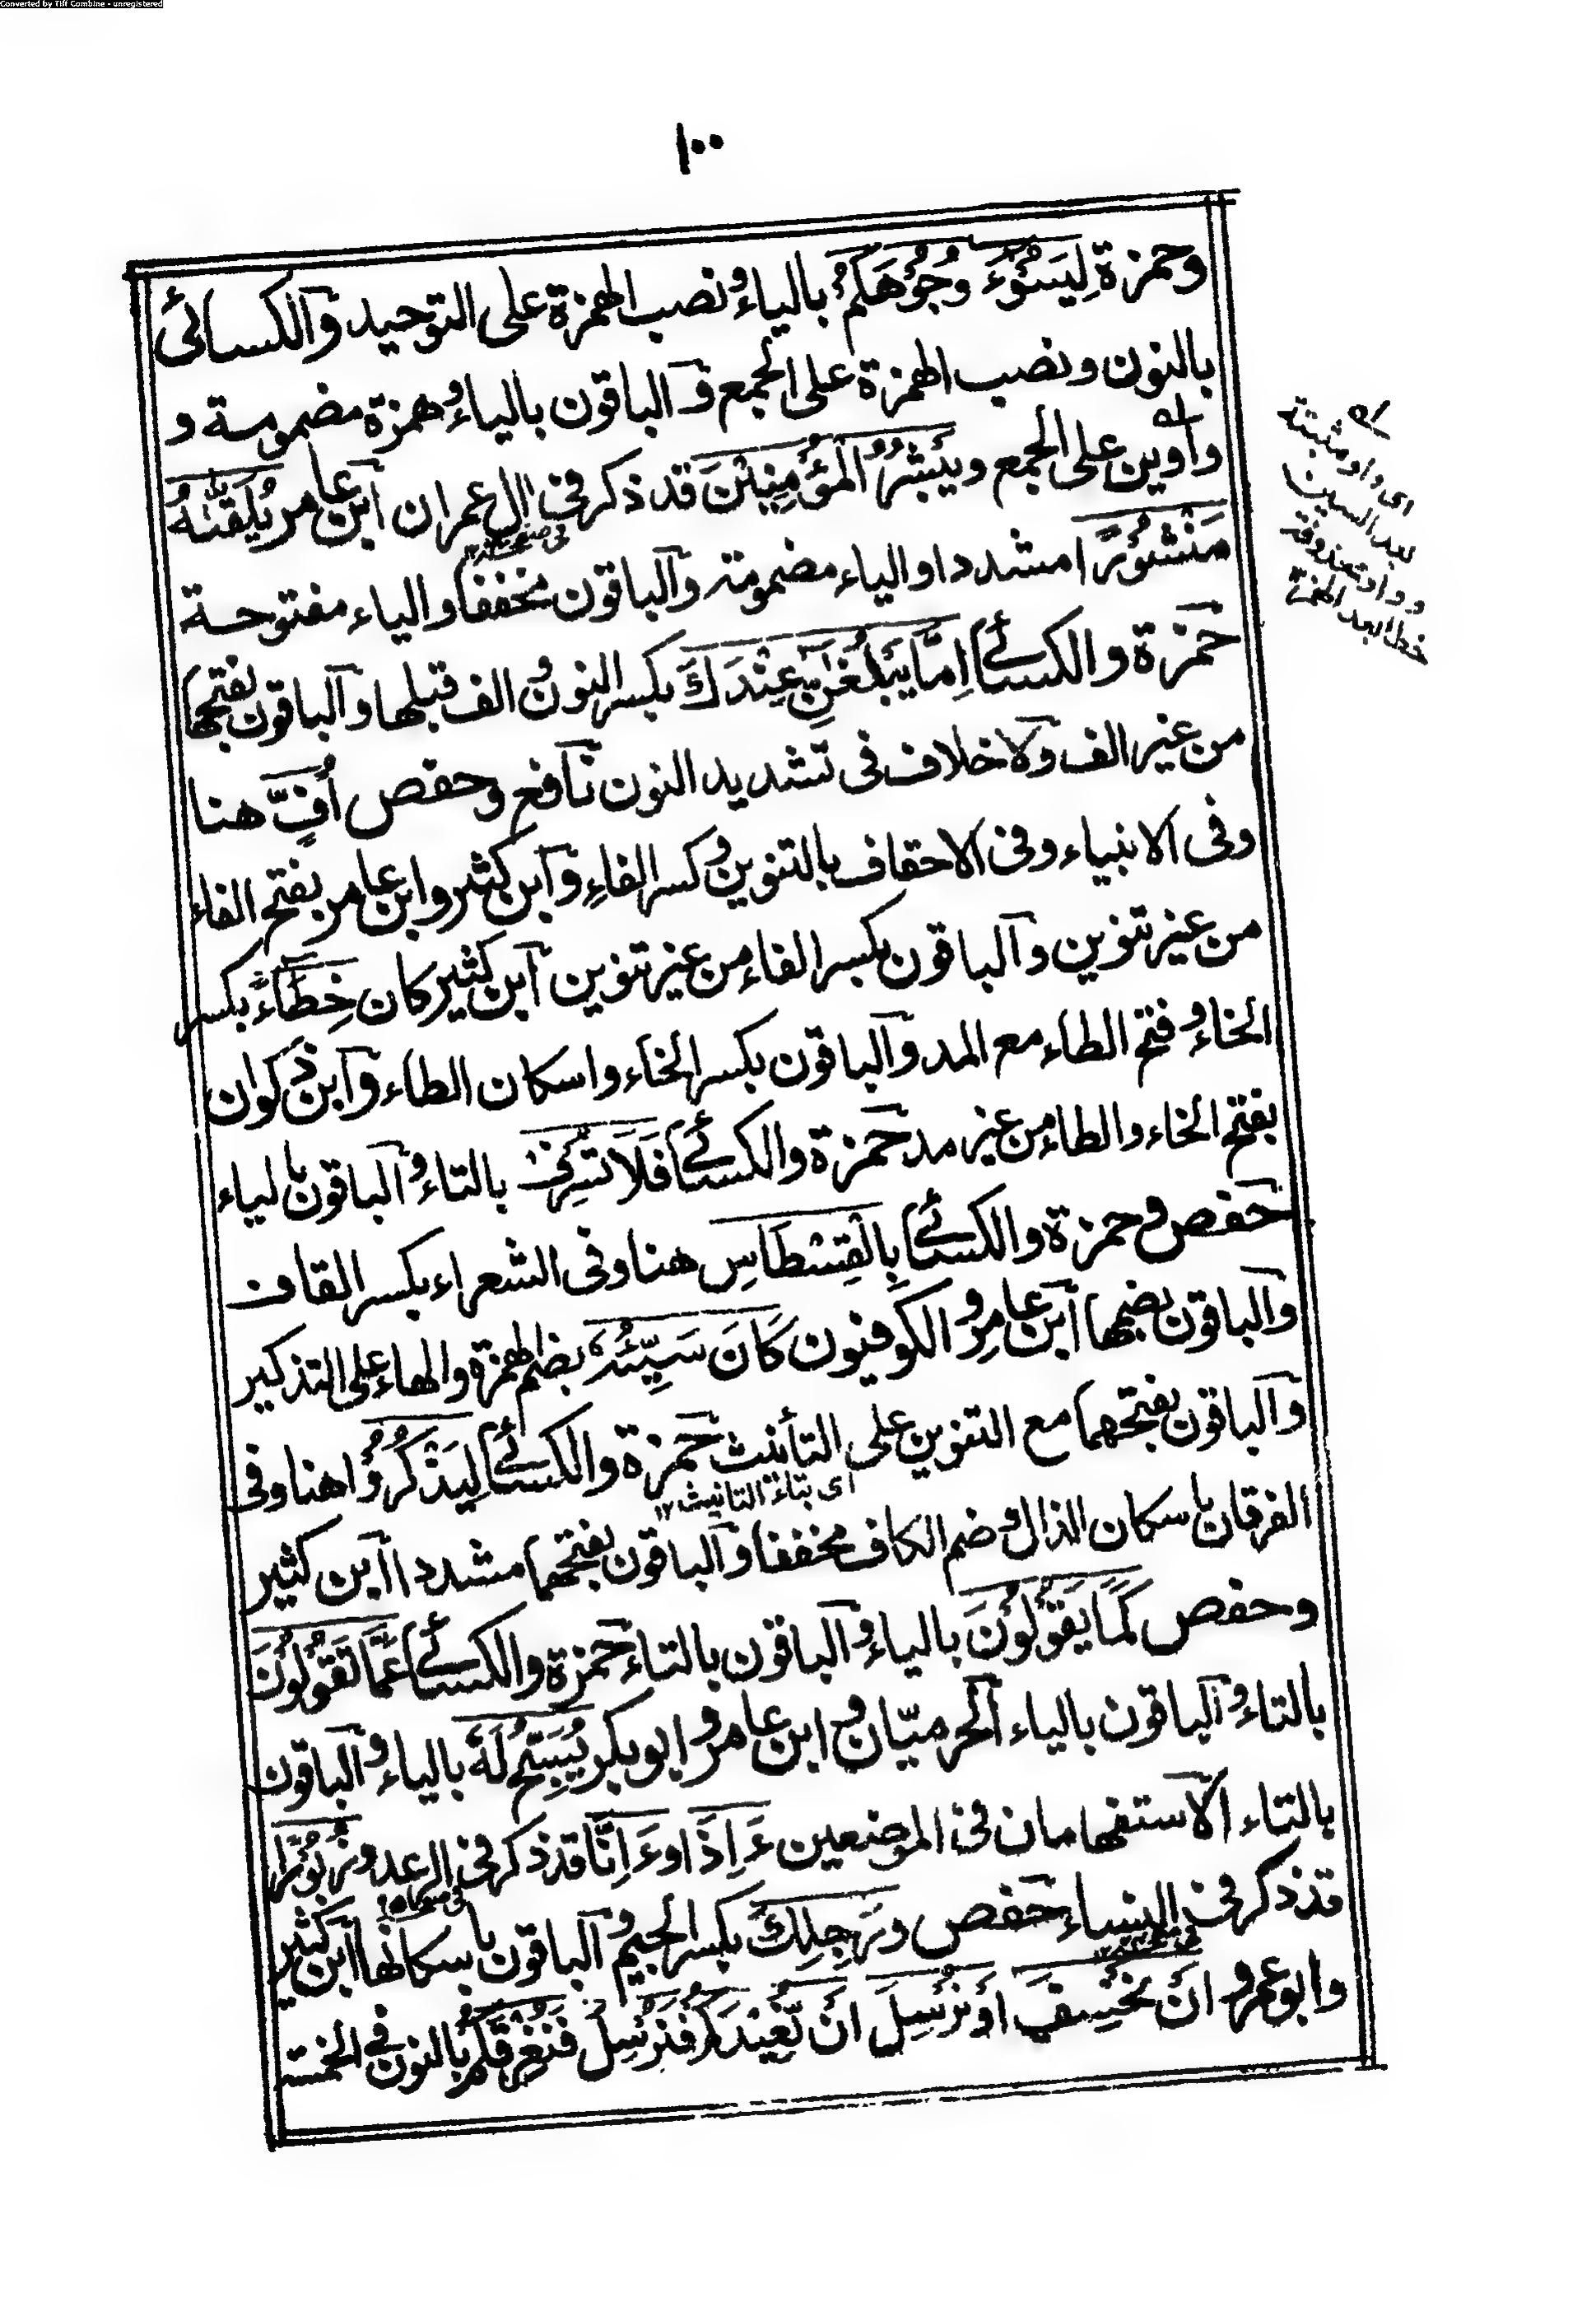 Converted by Tiff Combine - unregistered
١٠٠
وحمزة لِيَسُوْءَ وُجُوْهَكُمْ بالياء ونصب الهمزة على التوحيد والكسائى
بالنون ونصب الهمزة على الجمع والباقون بالياء وهمزة مضمومة و
واوين على الجمع ويَبْشُرُ الْمُؤْمِنِيْنَ قد ذكر فى ال عمران ابن عامر يُلَقّٰىهُ
مَنْشُوْرًا مشددا والياء مضمومة والباقون مخففا والياء مفتوحة
حمزة والكسائى اِمَّا يَبْلُغٰنِّ عِنْدَكَ بكسر النون والف قبلها والباقون بفتحها
من غير الف ولا خلاف فى تشديد النون نافع وحفص اُفٍّ هنا
وفى الانبياء وفى الاحقاف بالتنوين وكسر الفاء وابن كثير وابن عامر بفتح الفاء
من غير تنوين والباقون بكسر الفاء من غير تنوين ابن كثير كان خِطَآءً بكسر
الخاء وفتح الطاء مع المد والباقون بكسر الخاء واسكان الطاء وابن ذكوان
بفتح الخاء والطاء من غير مد حمزة والكسائى فَلَا تُسْرِفْ بالتاء والباقون بالياء
حفص وحمزة والكسائى بِالْقِسْطَاسِ هنا وفى الشعراء بكسر القاف
والباقون بضمها ابن عامر والكوفيون كَانَ سَيِّئُهٗ بضم الهمزة والهاء على التذكير
والباقون بفتحهما مع التنوين على التأنيث حمزة والكسائى لِيَذْكُرُوْا هنا وفى
اى بتاء التانيث ١٢
الفرقان باسكان الذال وضم الكاف مخففا والباقون بفتحهما مشددا ابن كثير
وحفص كَمَا يَقُوْلُوْنَ بالياء والباقون بالتاء حمزة والكسائى عَمَّا تَقُوْلُوْنَ
بالتاء والباقون بالياء الحرميّان وابن عامر وابو بكر يُسَبِّحُ لَهٗ بالياء والباقون
بالتاء الاستفهامان فى الموضعين ءَاِذَا وءَاِنَّا قد ذكر فى الرعد وزُبُوْرًا
قد ذكر فى النساء حفص ورَجِلِكَ بكسر الجيم والباقون باسكانها ابن كثير
وابو عمرو اَنْ نَخْسِفَ اَوْ نُرْسِلَ اَنْ نُّعِيْدَكُمْ فَنُرْسِلَ فَنُغْرِقَكُمْ بالنون فى الخمسة
اى واو مثبتة
بعد السين
وواو محذوفة
خطا بعد الهمزة